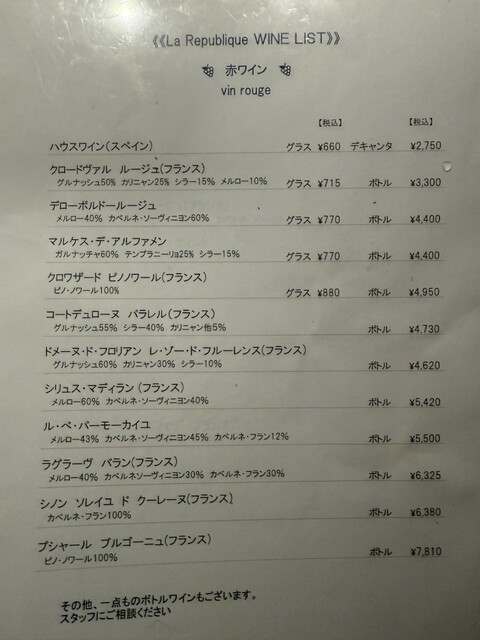 《《La Republique WINE LIST》》
赤ワイン
vin rouge
【税込】 【税込】
ハウスワイン(スペイン) グラス ¥660 デキャンタ ¥2,750
クロードヴァル ルージュ(フランス)
グルナッシュ50% カリニャン25% シラー15% メルロー10% グラス ¥715 ボトル ¥3,300
デローボルドールージュ
メルロー40% カベルネ・ソーヴィニヨン60% グラス ¥770 ボトル ¥4,400
マルケス・デ・アルファメン
ガルナッチャ60% テンプラニーリョ25% シラー15% グラス ¥770 ボトル ¥4,400
クロワザード ピノノワール(フランス)
ピノ・ノワール100% グラス ¥880 ボトル ¥4,950
コートデュローヌ パラレル(フランス)
グルナッシュ55% シラー40% カリニャン他5% ボトル ¥4,730
ドメーヌ・ド・フロリアン レ・ゾー・ド・フルーレンス(フランス)
グルナッシュ60% カリニャン30% シラー10% ボトル ¥4,620
シリュス・マディラン(フランス)
メルロー60% カベルネ・ソーヴィニヨン40% ボトル ¥5,420
ル・ペ・バーモーカイユ
メルロー43% カベルネ・ソーヴィニヨン45% カベルネ・フラン12% ボトル ¥5,500
ラグラーヴ バラン(フランス)
メルロー40% カベルネソーヴィニヨン30% カベルネ・フラン30% ボトル ¥6,325
シノン ソレイユ ド クーレーヌ(フランス)
カベルネ・フラン100% ボトル ¥6,380
ブシャール ブルゴーニュ(フランス)
ピノ・ノワール100% ボトル ¥7,810
その他、一点ものボトルワインもございます。
スタッフにご相談ください